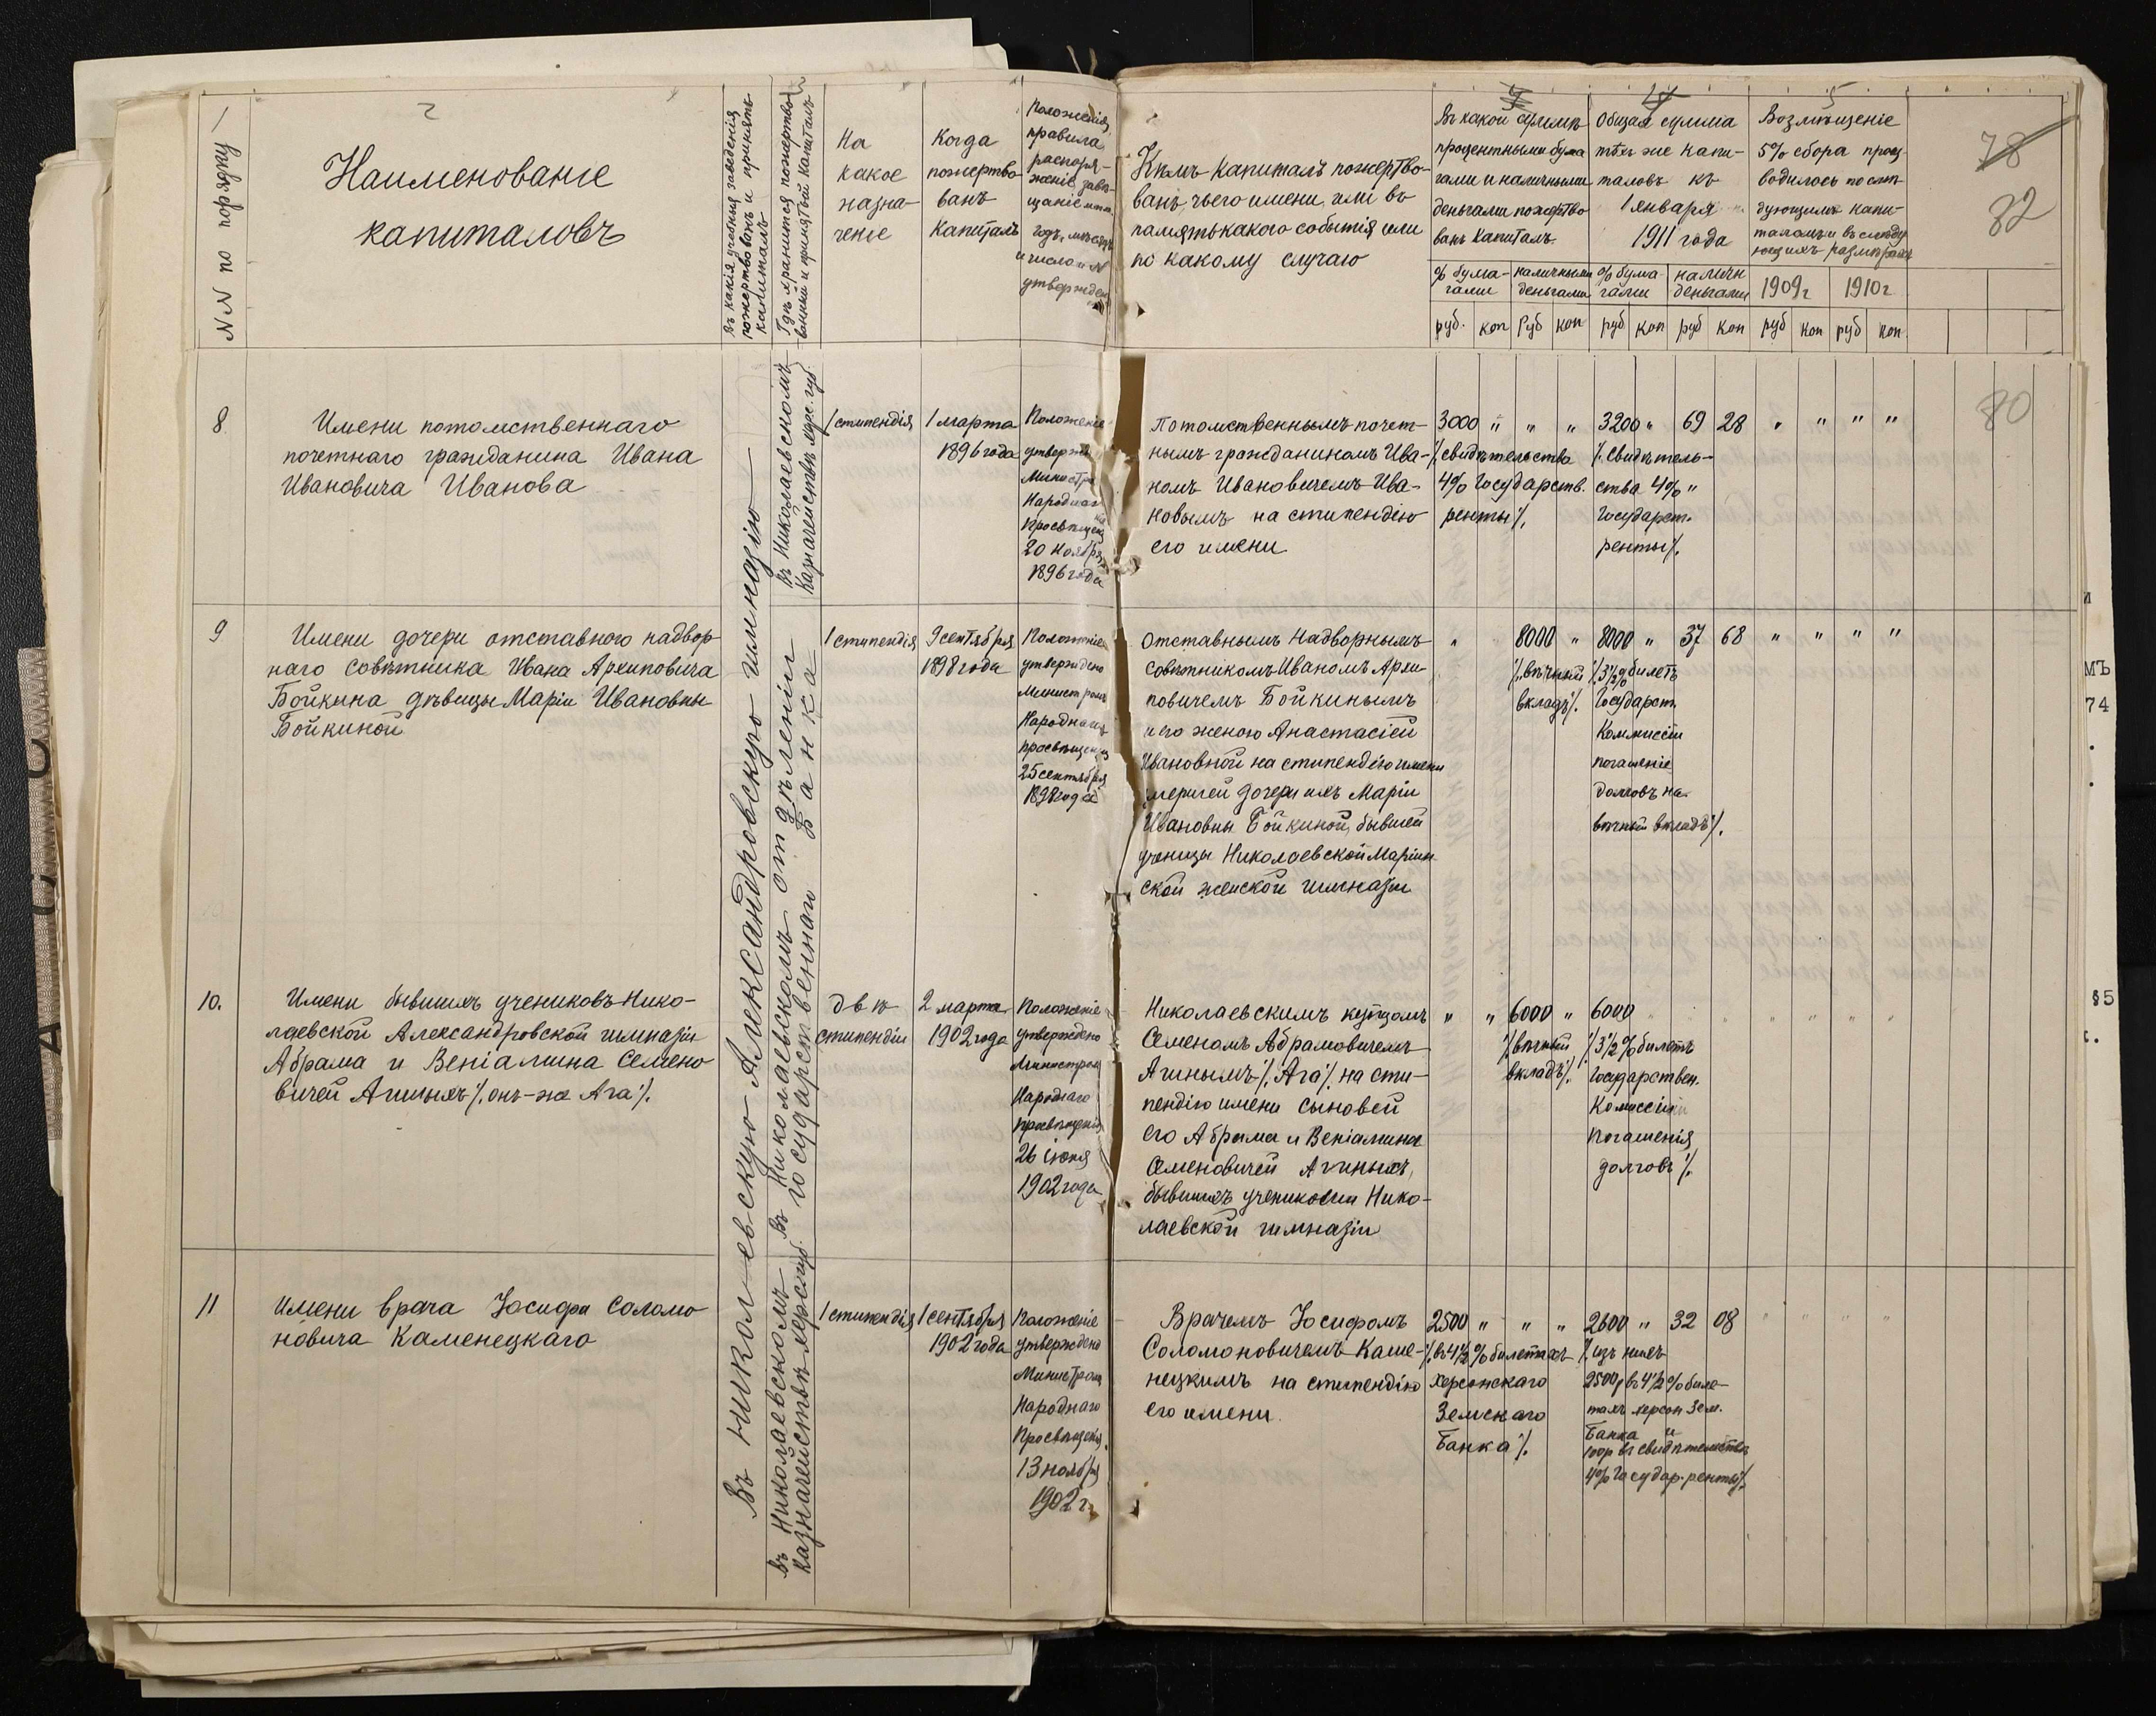 №№ по порядку
1
2
Наименованіе
капиталовъ
Въ какія учебныя заведенія
пожертвованъ и принятъ
капиталъ
Гдѣ хранится пожертво-
ванный и принятый капиталъ
На
какое
назна-
ченіе
Когда
пожертво-
ванъ
капиталъ
Положенія,
правила,
распоря-
женіе, завѣ-
щаніе и т.п.
годъ, мѣсяцъ
и число и №
утвержден.
Кѣмъ капиталъ пожертво-
ванъ, чьего имени, или въ
память какого событія или
по какому случаю
Въ какой суммѣ
процентными бума
гами и наличными
деньгами пожертво
ванъ капиталъ.
% бума-
гами
наличными
деньгами
руб. коп руб коп
Общая сумма
тѣхъ же капи-
таловъ къ
1 января
1911 года
% бума-
гами
наличн
деньгами
руб коп руб коп
5
Возмѣщеніе
5% сбора произ-
водилось по слѣ-
дующимъ капи-
таламъ и въ слѣду
ющихъ размѣрахъ
1909г 1910г
руб коп руб коп.
78
32
80
8
Имени потомственнаго
почетнаго гражданина Ивана
Ивановича Иванова
Въ Николаевскую Александровскую гимназію
Въ Николаевскомъ
Казначействѣ Херс. губ.
1 стипендія
1 марта
1896 года
Положеніе
утвержд
Министр
Народнаг
Просвѣщен
20 ноября
1896 года
Потомственнымъ почет-
нымъ гражданиномъ Ива-
номъ Ивановичемъ Ива-
новымъ на стипендію
его имени
3000 " " "
/. свидѣтельства
4% Государств.
ренты /.
3200 " 69 28
/. свидѣтель-
ства 4% "
Государст.
ренты /.
" " " "
9
Имени дочери отставного надвор-
наго совѣтника Ивана Архиповича
Бойкина дѣвицы Маріи Ивановны
Бойкиной
Въ Николаевскомъ отдѣленіи
государственнаго Банка
1 стипендія
9 сентября
1898 года
Положеніе
утверждено
Министромъ
Народнаго
просвѣщенія
25 сентября
1898 года
Отставнымъ Надворнымъ
Совѣтникомъ Иваномъ Архи-
повичемъ Бойкинымъ
и его женою Анастасіей
Ивановной на стипендію имени
умершей дочери ихъ Маріи
Ивановны Бойкиной, бывшей
ученицы Николаевской Маріин-
ской женской гимназіи
" 8000 "
/. вѣчный
вкладъ /.
8000 " 37 68
/. 3 1/2 % билетъ
Государст.
Коммиссіи
погашеніе
долговъ на
вѣчный вкладъ /.
" " " "
10.
Имени бывшихъ учениковъ Нико-
лаевской Александровской гимназіи
Абрама и Веніамина Семено
вичей Агиныхъ /. онъ-же Ага /.
двѣ
стипендіи
2 марта
1902 года
Положеніе
утверждено
Министром
Народнаго
просвѣщенія
26 іюня
1902 года
Николаевскимъ купцомъ
Семеномъ Абрамовичемъ
Агинымъ /. Ага /. на сти-
пендію имени сыновей
его Абрама и Веніамина
Семеновичей Агиныхъ,
бывшихъ учениковъ Нико-
лаевской гимназіи
" " 6000 "
/. вѣчный
вкладъ /.
6000
/. 3 1/2 % билетъ
Государствен.
Комиссіи
погашенія
долговъ /.
" " " "
11
Имени врача Іосифа Соломо
новича Каменецкаго
Въ Николаевскомъ
Казначействѣ Херс. губ.
1 стипендія
1 сентября
1902 года
Положеніе
утверждено
Министром
Народнаго
Просвѣщенія
13 ноября
1902 г.
Врачемъ Іосифомъ
Соломоновичемъ Каме-
нецкимъ на стипендію
его имени.
2500 " " "
/. въ 4 1/2 % билетахъ
Херсонскаго
Земскаго
Банка /.
2600 " 32 08
/. изъ нихъ
2500 р въ 4 1/2 % биле-
тахъ Херсон Зем.
Банка и
100 р въ свидѣтельствѣ
4% Государ. ренты /.
" " " "
и
МЪ
74
§5